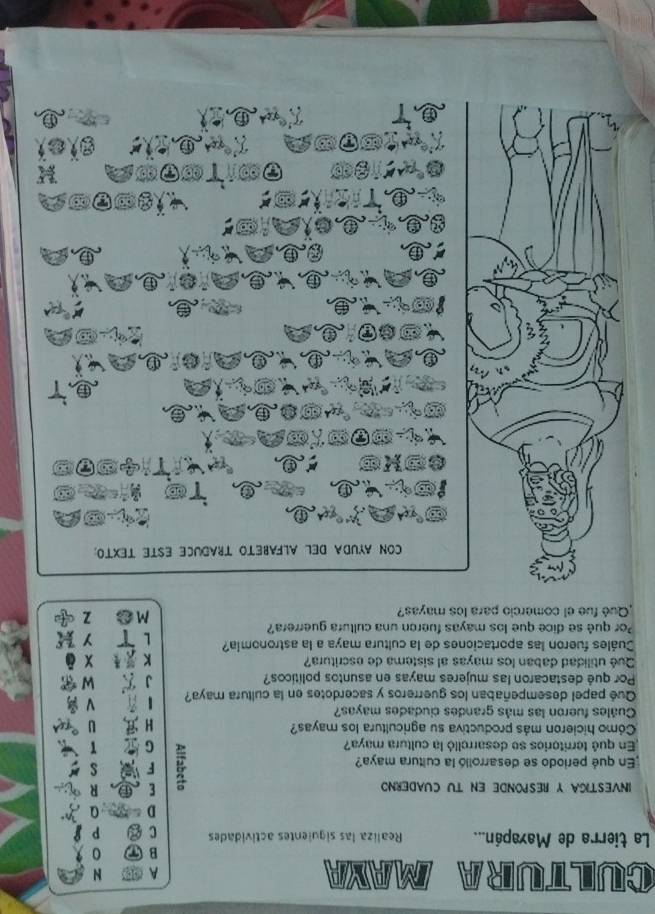 CULTURA MAYA
La tierra de Mayapán...
Realiza las siguientes actividades
INVESTIGA Y RESPONDE EN TU CUADERNO
En qué periodo se desarrolló la cultura maya?
En qué territorios se desarrolló la cultura maya?
Cómo hicieron más productiva su agricultura los mayas?
Cuáles fueron las más grandes ciudades mayas?
Qué papel desempeñaban los guerreros y sacerdotes en la cultura maya?
Por qué destacaron las mujeres mayas en asuntos políticos?
Qué utilidad daban los mayas al sistema de escritura?
Cuáles fueron las aportaciones de la cultura maya a la astronomía?
Por qué se dice que los mayas fueron una cultura guerrera?
Qué fue el comercio para los mayas?
Alfabeto
A N
B O
C P
D Q
E R
F S
G T
H U
I V
J W
K X
L Y
M Z
CON AYUDA DEL ALFABETO TRADUCE ESTE TEXTO: